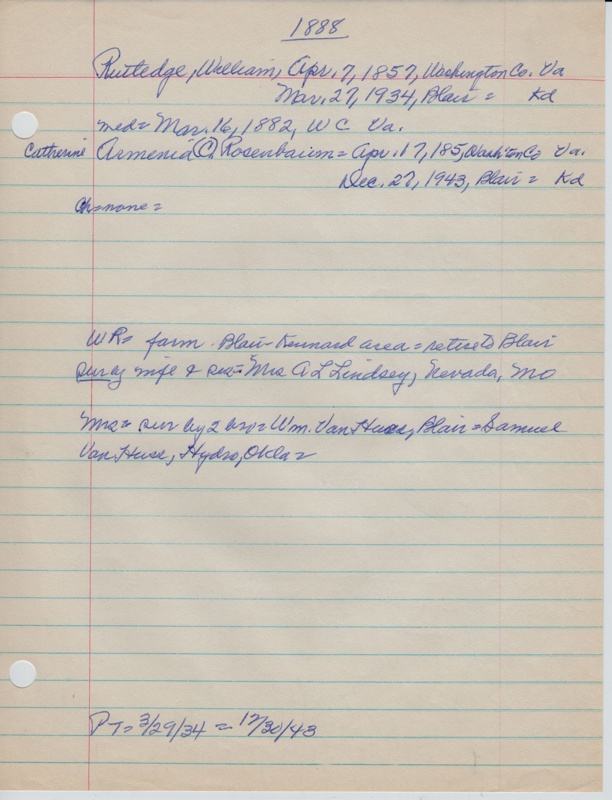 1888
Rutledge, William, Apr. 7, 1857, Washington Co. Va
Mar. 27, 1934, Blair = Kd
med= Mar. 16, 1882, W C Va.
Catherine Armenia C. Rosenbaum = Apr. 17, 185, Wash'ton Co Va.
Dec. 27, 1943, Blair = Kd
Ch=none=
WR= farm Blair-Kennard area = retire to Blair
sur by wife & sis= Mrs A L Lindsey, Nevada, Mo
Mrs= sur by 2 bro= Wm. Van Huse, Blair = Samuel
Van Huse, Hydro, Okla =
PT= 3/29/34 = 12/30/43